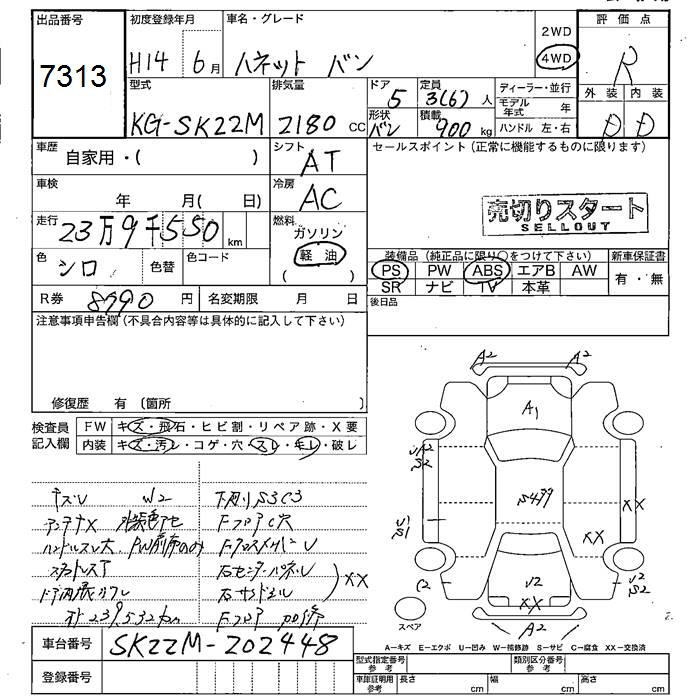 出品番号 初度登録年月 車名・グレード 2WD 評価点
7313 H14 6月 ハネット バン 4WD R
型式 排気量 ドア 定員 ディーラー・並行 外装 内装
KG-SK22M 2180 CC 5 3(6)人 モデル年式 年 D D
形状 バン 積載 900 kg ハンドル 左・右
車歴 自家用・( ) シフト AT セールスポイント(正常に機能するものに限ります)
車検 年 月( 日) 冷房 AC
売切りスタート
SELLOUT
走行 23万9千550 km 燃料 ガソリン
軽油
( )
色 シロ 色替 色コード
装備品(純正品に限り○をつけて下さい) 新車保証書
PS PW ABS エアB AW 有・無
SR ナビ TV 本革
R券 8790 円 名変期限 月 日 後日品
注意事項申告欄(不具合内容等は具体的に記入して下さい)
修復歴 有(箇所
検査員 FW キズ・飛石・ヒビ割・リペア跡・X要
記入欄 内装 キズ・汚レ・コゲ・穴・スレ・キレ・破レ
キズU W2 下廻りS3C3
アンテナX FフロアC穴
ハンドルスレ大 FクロスメンバーU
右センターパネル
XX
右サイドシル
239,532km Fフロア
A2 A2
A1
S499
U2
S2
U1
S1
XX
XX
C2
U2
XX
U2
S2
A2
スペア
A-キズ E-エクボ U-凹み W-補修跡 S-サビ C-腐食 XX-交換済
車台番号 SK22M-202448
登録番号
型式指定番号 参考 類別区分番号 参考
車庫証明用 参考 長さ cm 幅 cm 高さ cm